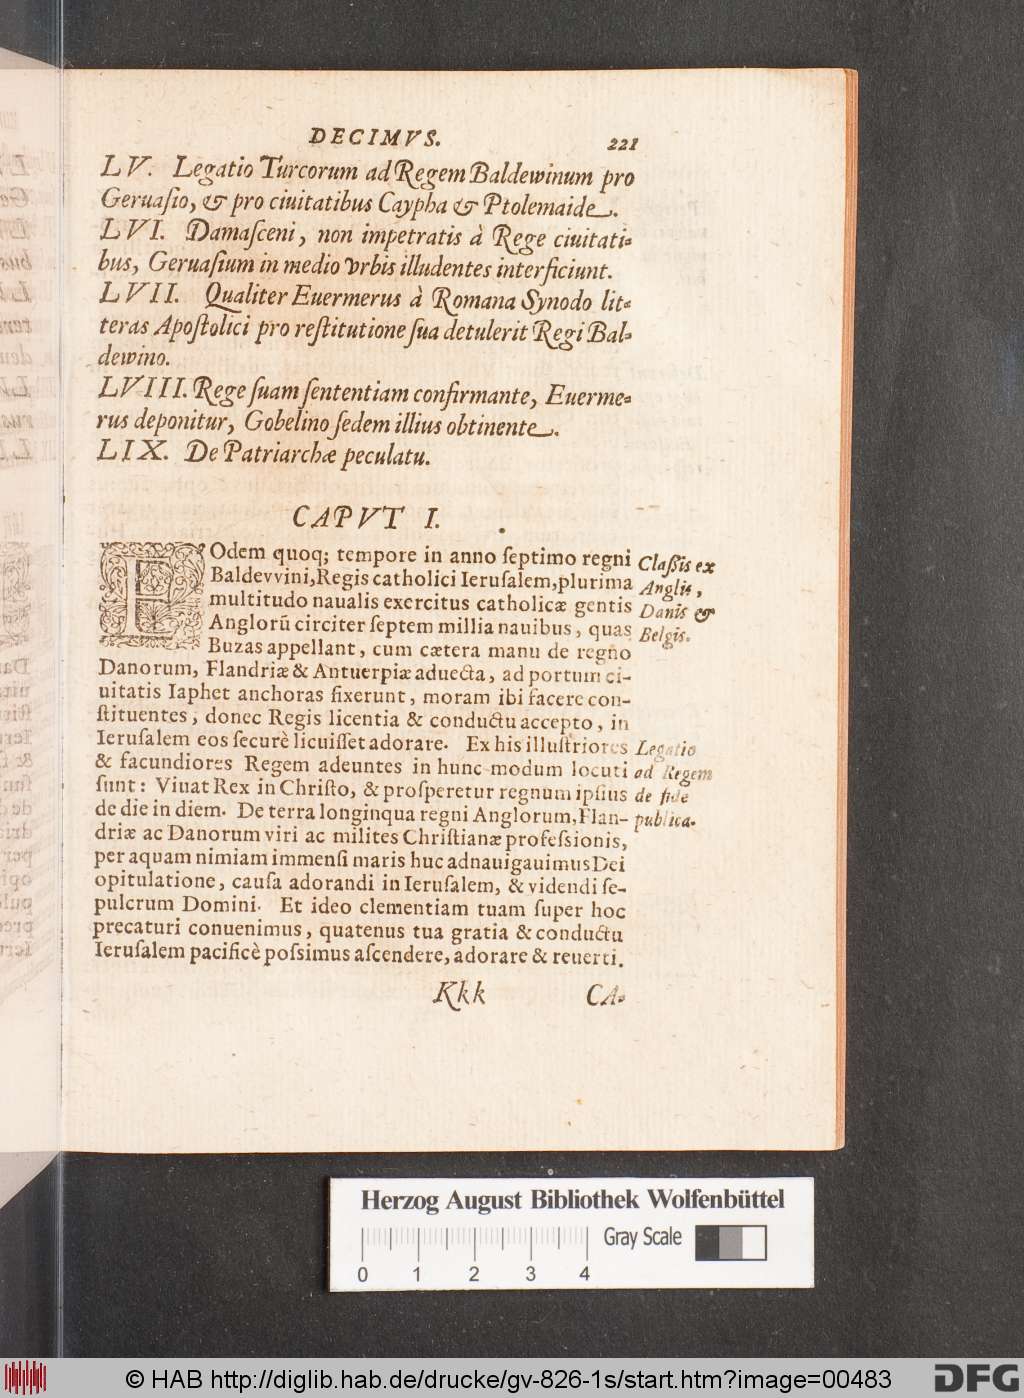 DECIMVS. 221
LV. Legatio Turcorum ad Regem Baldewinum pro
Geruaſio, & pro ciuitatibus Caypha & Ptolemaide.
LVI. Damaſceni, non impetratis à Rege ciuitati-
bus, Geruaſium in medio vrbis illudentes interficiunt.
LVII. Qualiter Euermerus à Romana Synodo lit-
teras Apoſtolici pro reſtitutione ſua detulerit Regi Bal-
dewino.
LVIII. Rege ſuam ſententiam confirmante, Euerme-
rus deponitur, Gobelino ſedem illius obtinente.
LIX. De Patriarchæ peculatu.
CAPVT I.
EOdem quoq; tempore in anno ſeptimo regni
Baldevvini, Regis catholici Ieruſalem, plurima
multitudo naualis exercitus catholicæ gentis
Anglorũ circiter ſeptem millia nauibus, quas
Buzas appellant, cum cætera manu de regno
Danorum, Flandriæ & Antuerpiæ aduecta, ad portum ci-
uitatis Iaphet anchoras fixerunt, moram ibi facere con-
ſtituentes, donec Regis licentia & conductu accepto, in
Ieruſalem eos ſecurè licuiſſet adorare. Ex his illuſtriores
& facundiores Regem adeuntes in hunc modum locuti
ſunt: Viuat Rex in Chriſto, & proſperetur regnum ipſius
de die in diem. De terra longinqua regni Anglorum, Flan-
driæ ac Danorum viri ac milites Chriſtianæ profeſsionis,
per aquam nimiam immenſi maris huc adnauigauimus Dei
opitulatione, cauſa adorandi in Ieruſalem, & videndi ſe-
pulcrum Domini. Et ideo clementiam tuam ſuper hoc
precaturi conuenimus, quatenus tua gratia & conductu
Ieruſalem pacificè poſsimus aſcendere, adorare & reuerti.
Claſsis ex
Anglis,
Danis &
Belgis.
Legatio
ad Regem
de fide
publica.
Kkk CA-
Herzog August Bibliothek Wolfenbüttel
Gray Scale
0 1 2 3 4
© HAB http://diglib.hab.de/drucke/gv-826-1s/start.htm?image=00483
DFG